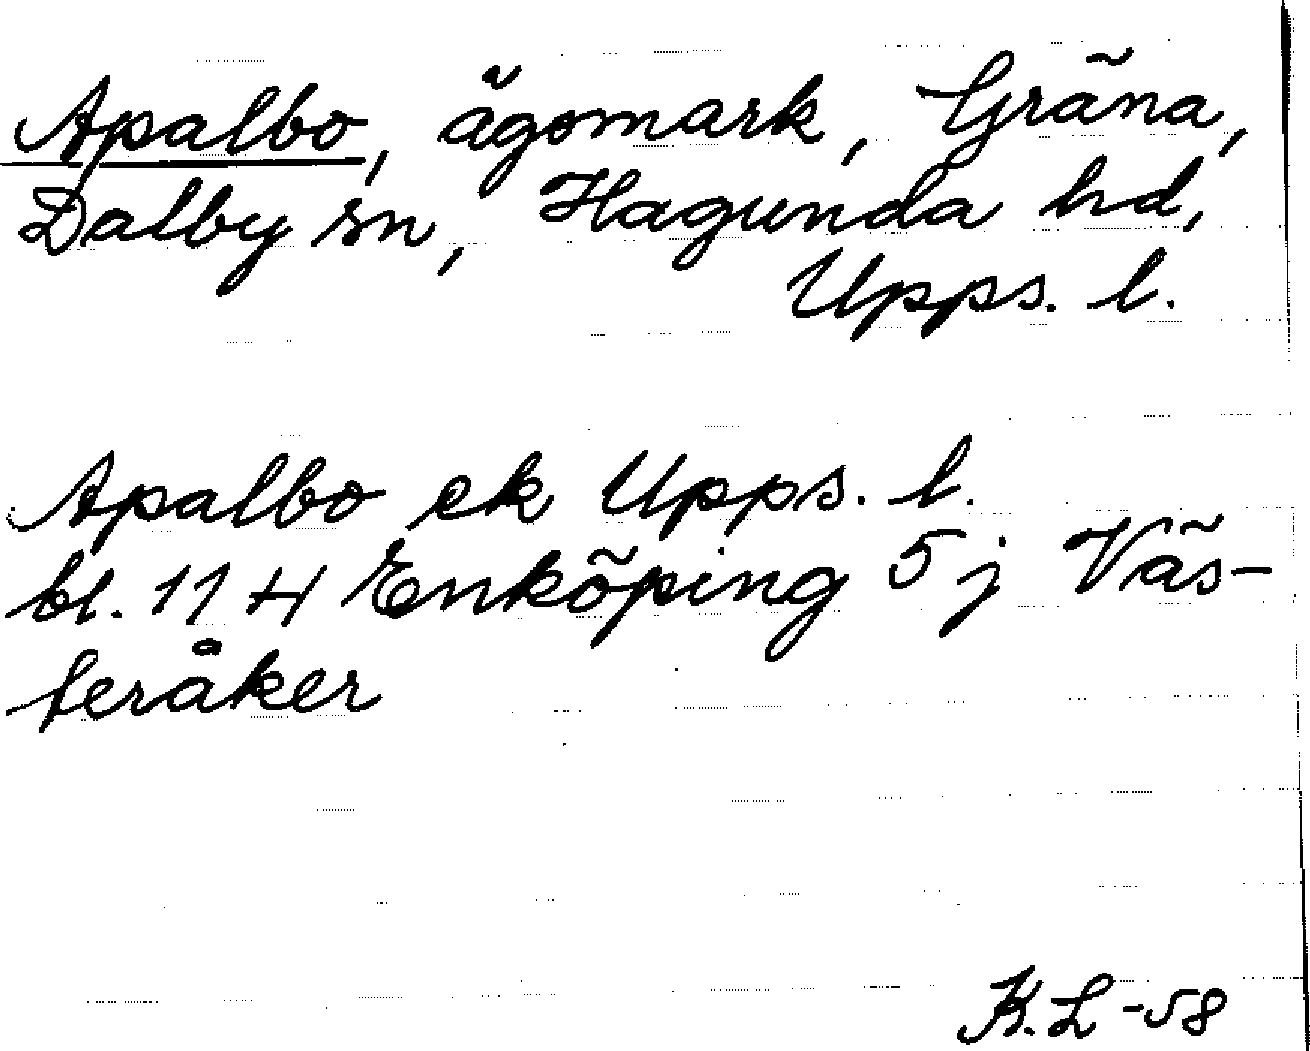 Apalbo, ägomark, Gräna,
Dalby sn, Hagunda hd,
Upps. l.
Apalbo ek Upps. l.
bl. 11 H Enköping 5 j Väs-
teråker
K. L -58